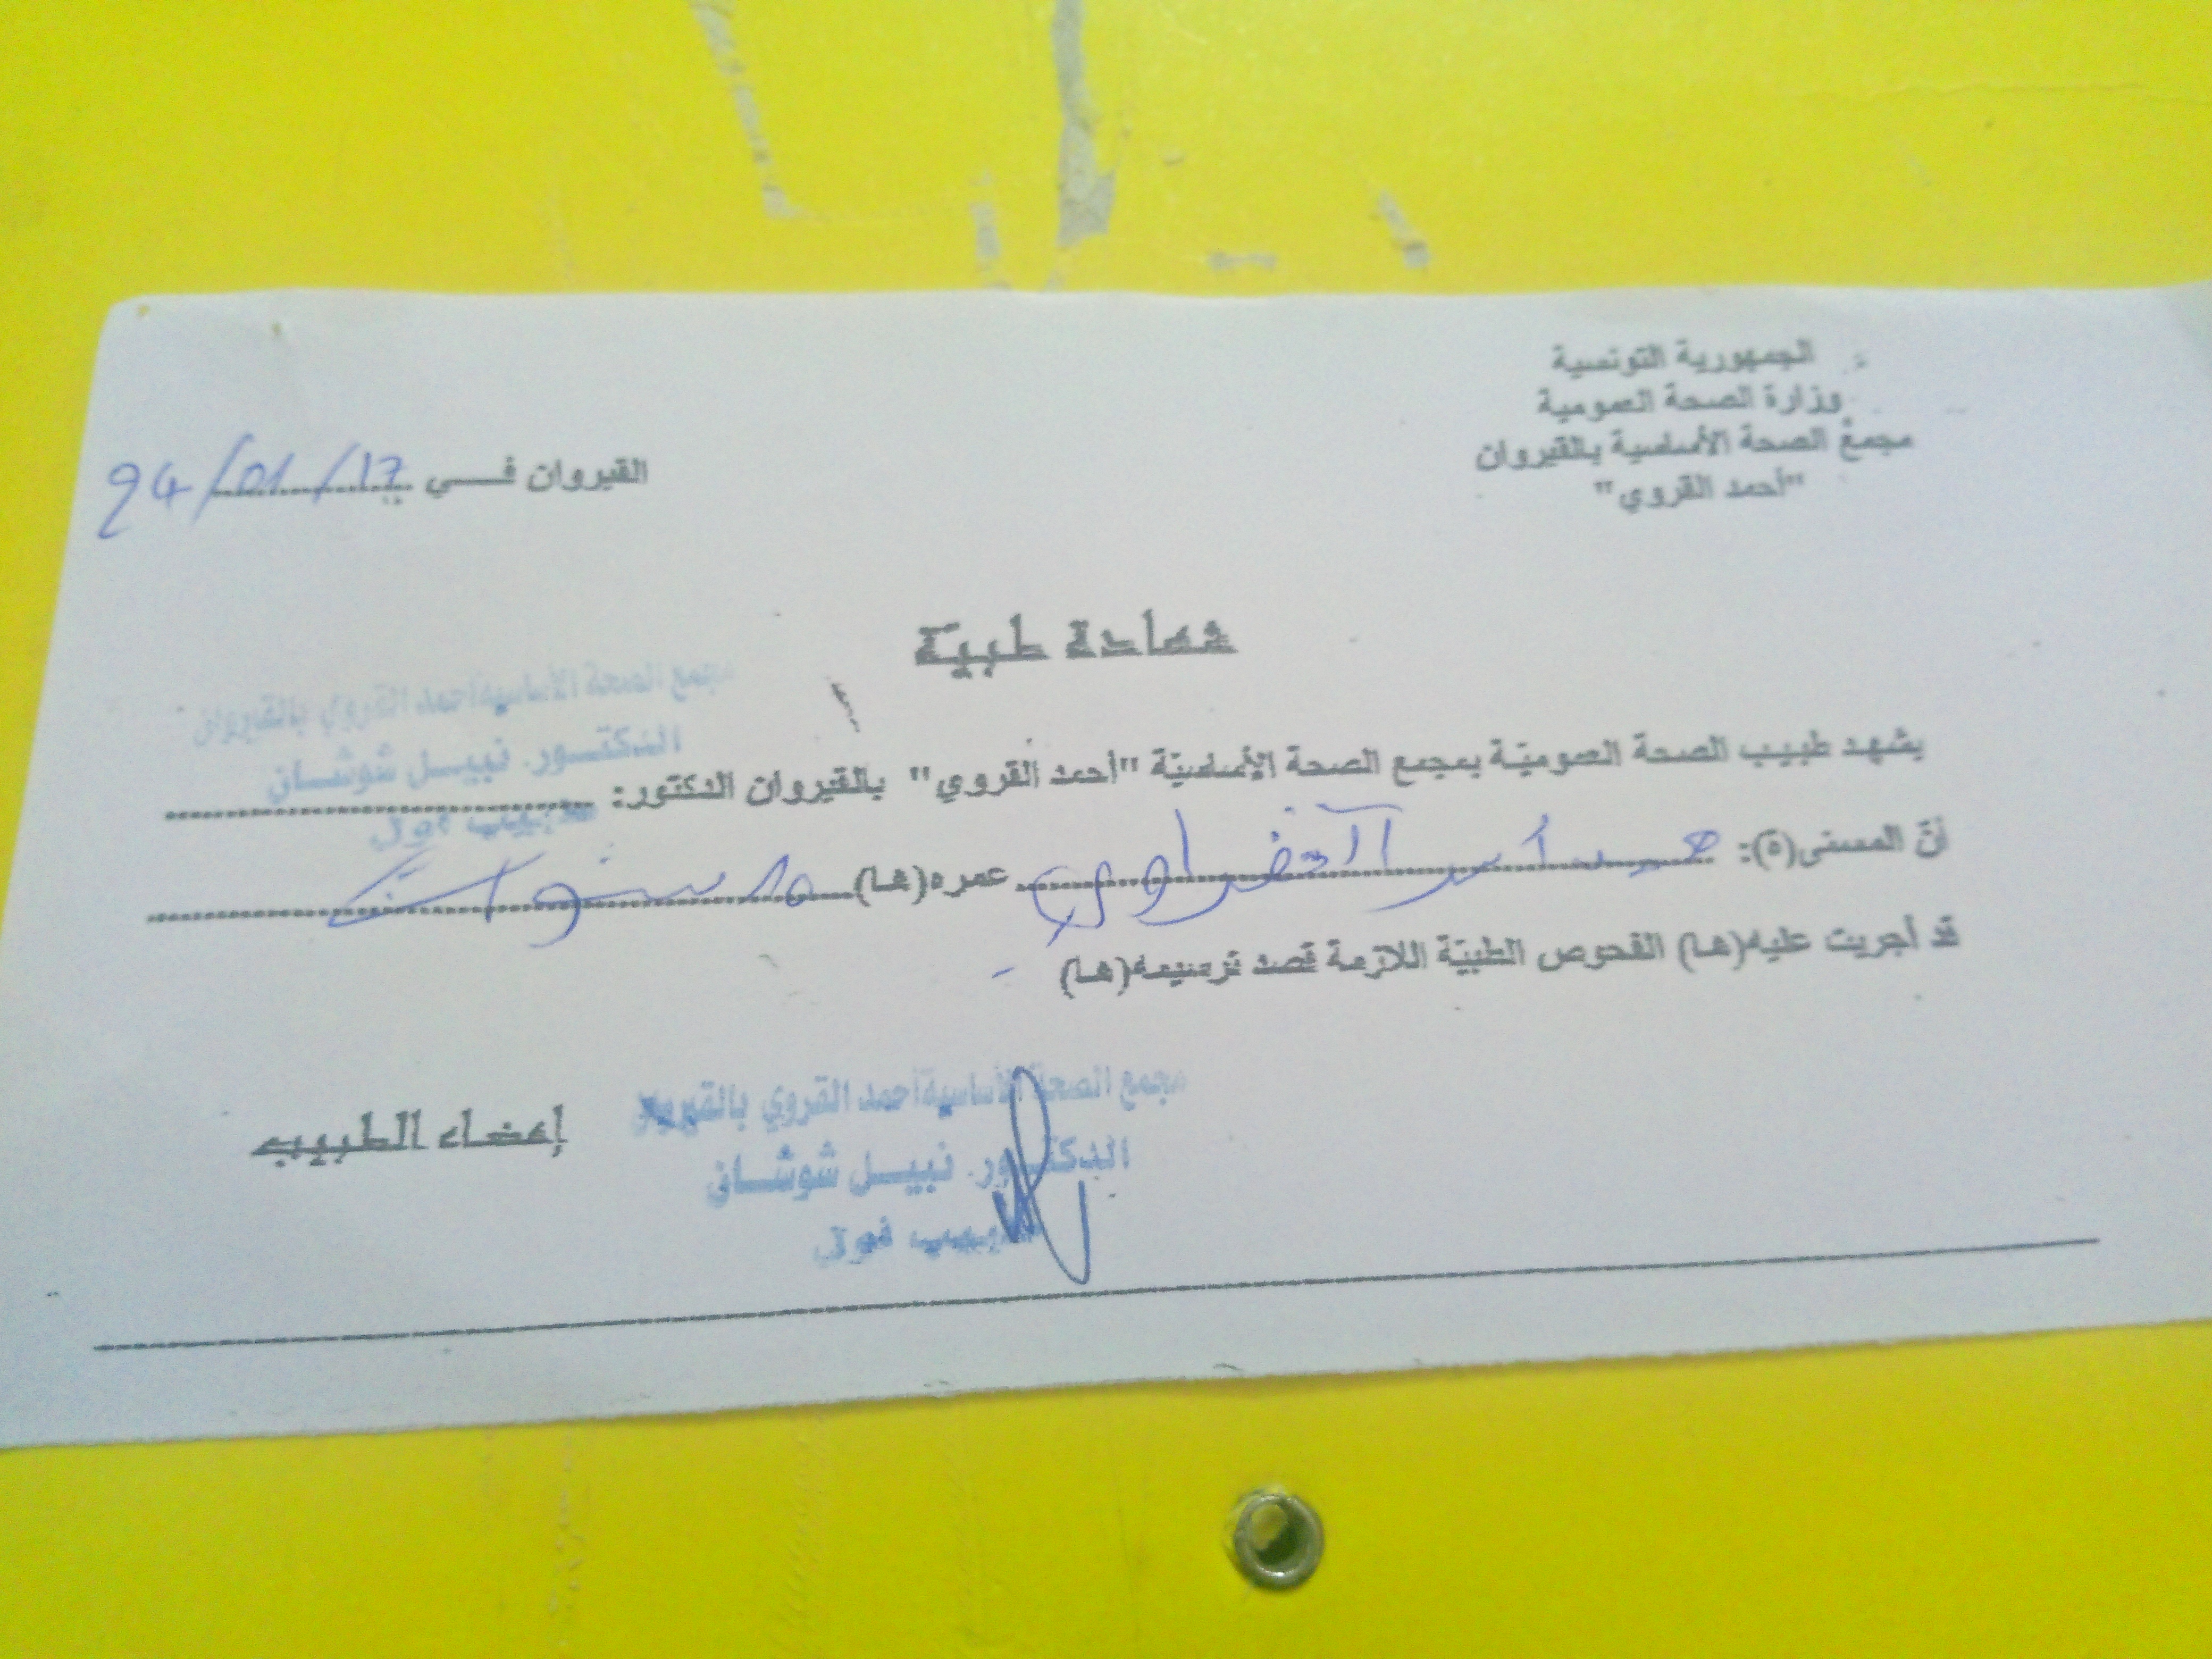 الجمهورية التونسية
وزارة الصحة العمومية
مجمع الصحة الأساسية بالقيروان
"أحمد القروي"
القيروان في 24/01/17
شهادة طبية
مجمع الصحة الأساسية أحمد القروي بالقيروان
الدكتور. نبيل شوشان
طبيب أول
يشهد طبيب الصحة العموميّة بمجمع الصحة الأساسيّة "أحمد القروي" بالقيروان الدكتور:
أنّ المسمّى(ة): عمره(ها) سنوات
قد أجريت عليه(ها) الفحوص الطبيّة اللازمة قصد ترسيمه(ها)
إمضاء الطبيب
مجمع الصحة الأساسية أحمد القروي بالقيروان
الدكتور. نبيل شوشان
طبيب أول